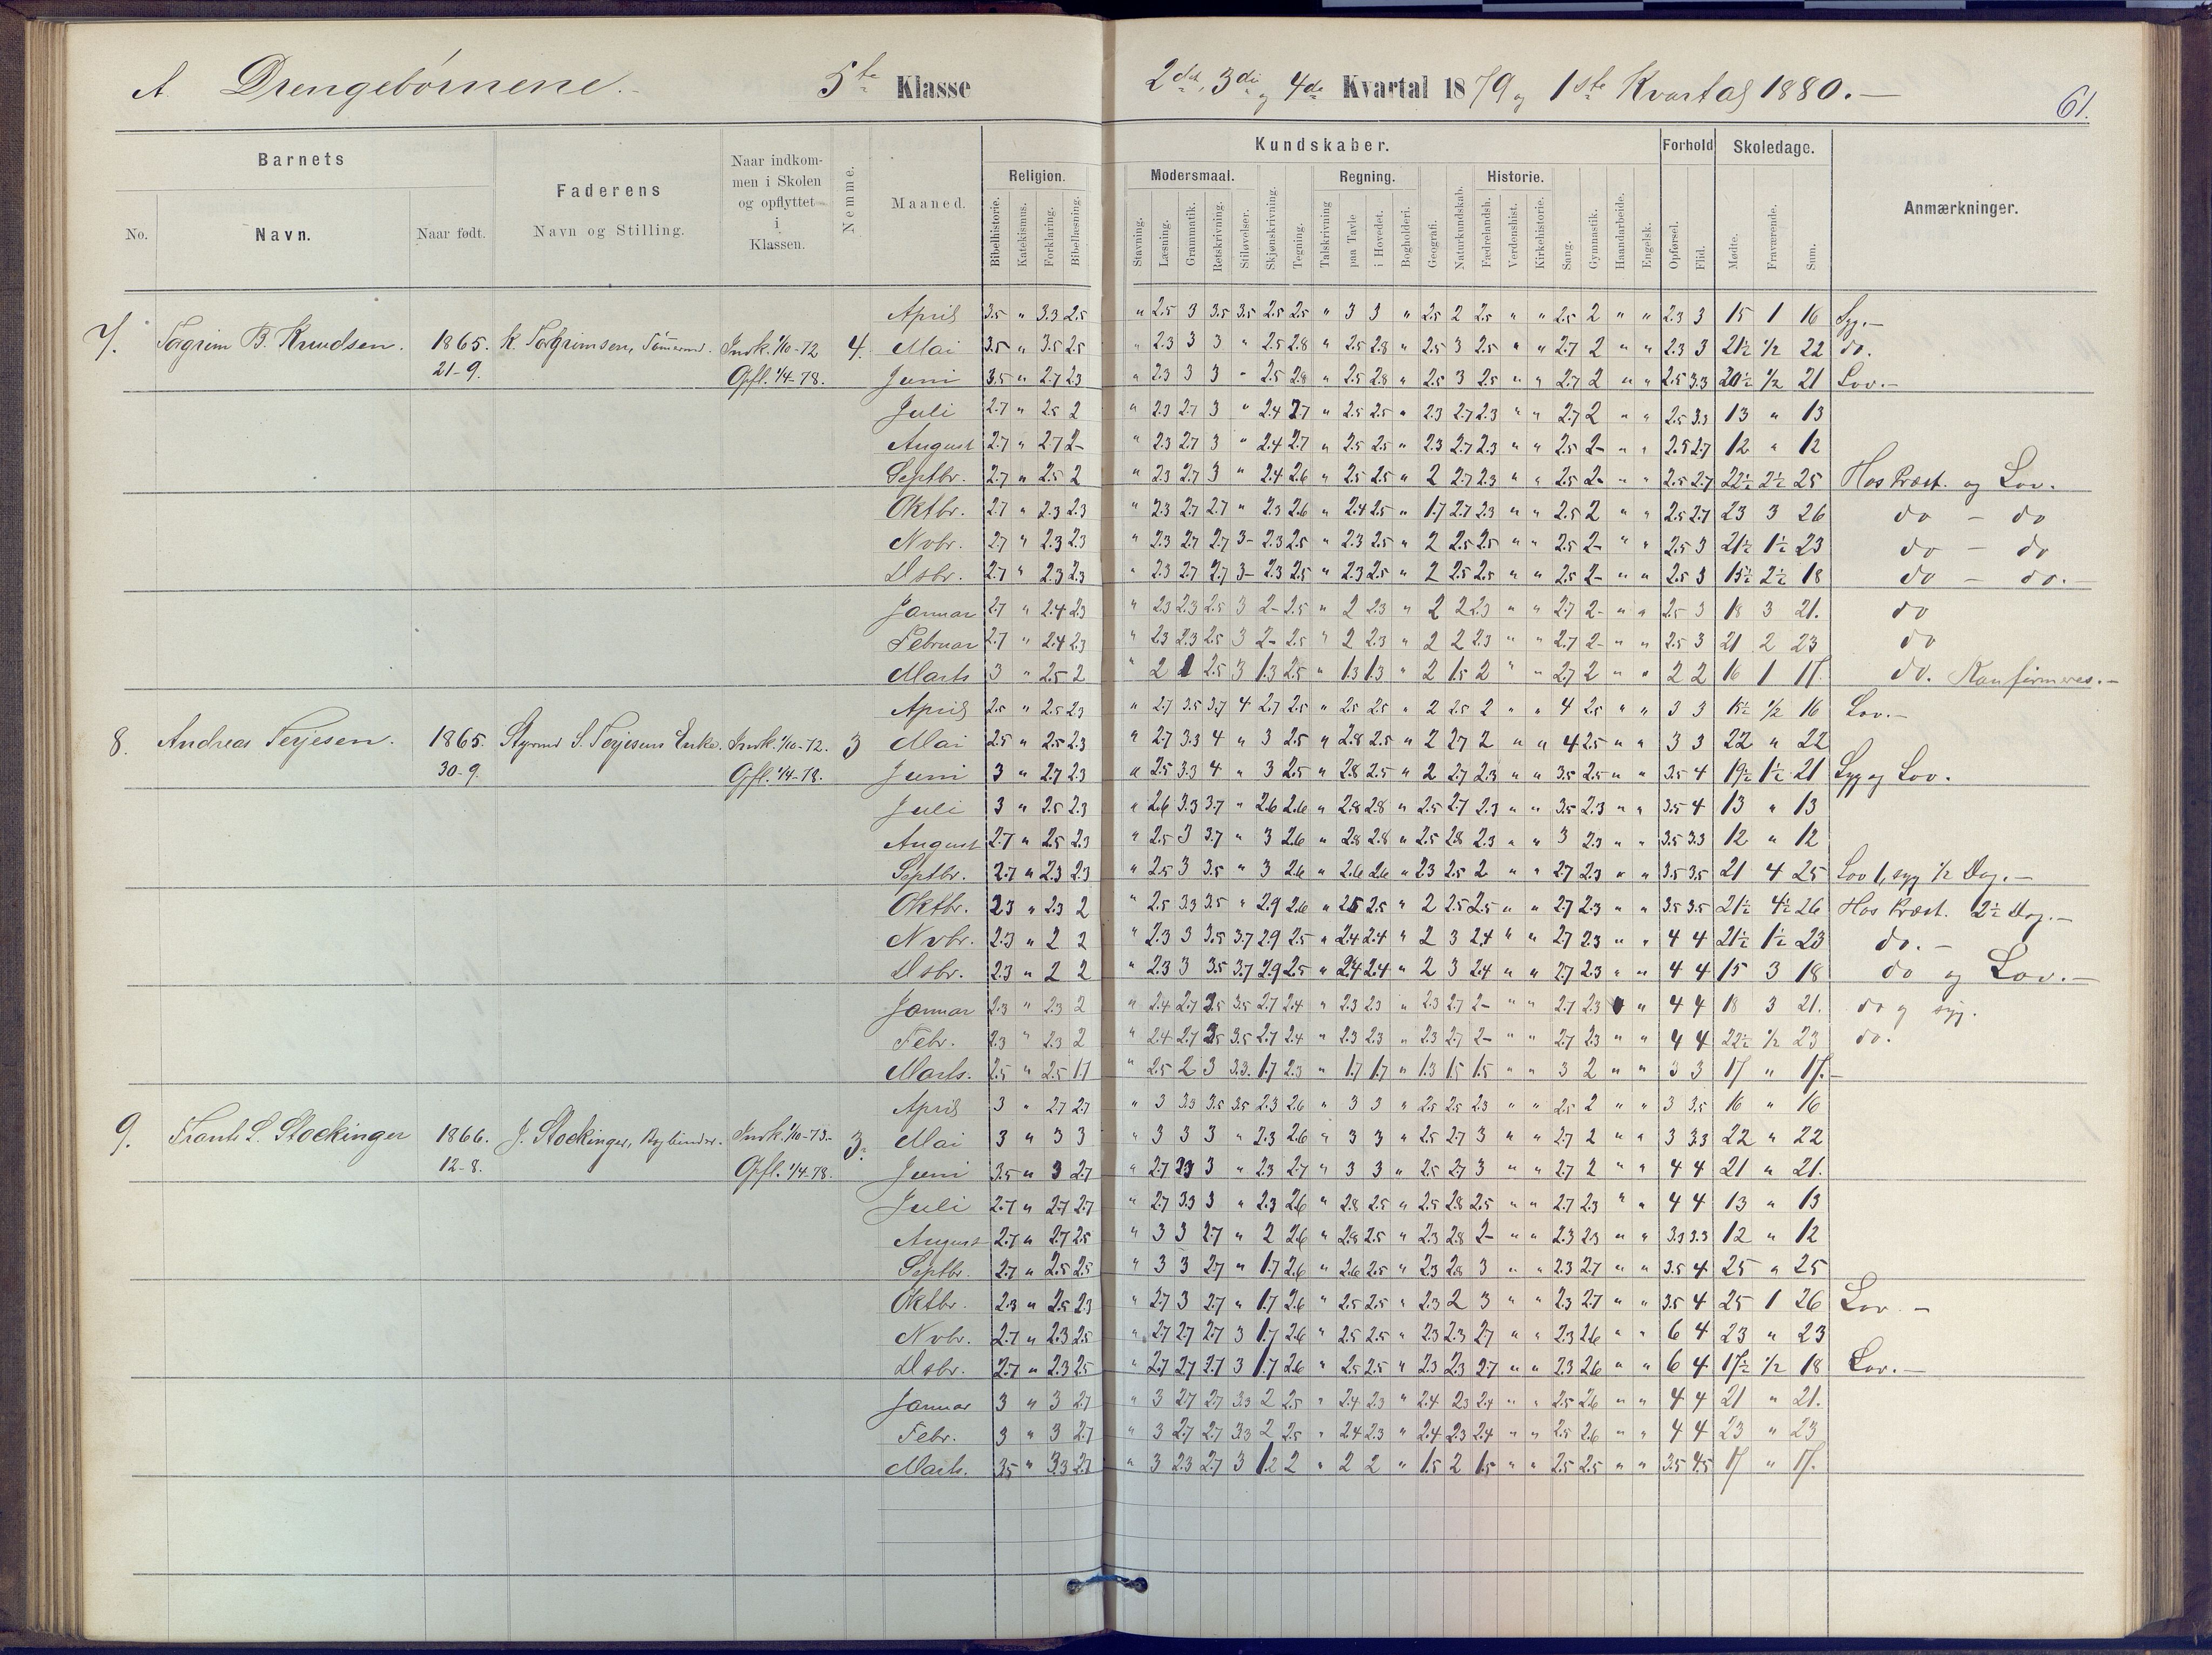 A Drengebörnene.
5te Klasse
2det, 3die og 4de Kvartal 1879 og 1ste Kvartal 1880.
61.
Barnets
No.
Navn.
Naar født.
Faderens
Navn og Stilling.
Naar indkom-
men i Skolen
og opflyttet
i
Klassen.
Nemme.
Maaned.
Religion.
Bibelhistorie.
Katekismus.
Forklaring.
Bibellæsning.
Kundskaber.
Modersmaal.
Stavning.
Læsning.
Grammatik.
Retskrivning.
Stiløvelser.
Skjønskrivning.
Tegning.
Regning.
Talskrivning
paa Tavle
i Hovedet.
Bogholderi.
Geografi.
Naturkundskab.
Historie.
Fædrelandsh.
Verdenshist.
Kirkehistorie.
Sang.
Gymnastik.
Haandarbeide.
Engelsk.
Forhold
Opførsel.
Flid.
Skoledage.
Mødte.
Fraværende.
Sum.
Anmærkninger.
April 3.5 " 3.3 2.5 " 2.5 3 3.5 3.5 2.5 2.5 " 3 3 " 2.5 2 2.5 " " 2.5 2 " " 2.3 3 15 1 16 Syg.-
7. Torgrim B. Knudsen. 1865. K. Torgrimsen, Tömermd. Indk. 1/10-72 4. Mai 3.5 " 3.5 2.5 " 2.3 3 3 " 2.5 2.8 " 2.5 2.8 " 2.5 3 2.5 " " 2.7 2 " " 2.3 3 21½ ½ 22 do.
21-9. Opfl. 1/4-78. Juni 3.5 " 2.7 2.3 " 2.3 3 3 " 2.5 2.8 " 2.5 2.8 " 2.5 3 2.5 " " 2.7 2 " " 2.5 3.3 20½ ½ 21 Lov.-
Juli 2.7 " 2.5 2 " 2.3 2.7 3 " 2.4 2.7 " 2.5 2.5 " 2.3 2.7 2.3 " " 2.7 2 " " 2.5 3.3 13 " 13
August 2.7 " 2.7 2- " 2.3 2.7 3 " 2.4 2.7 " 2.5 2.5 " 2.3 2.7 2.3 " " 2.5 2- " " 2.5 2.7 12 " 12
Septbr. 2.7 " 2.5 2 " 2.3 2.7 3 " 2.4 2.6 " 2.5 2.5 " 2 2.7 2.3 " " 2.5 2- " " 2.5 2.7 22½ 2½ 25 Hos Præst. og Lov.
Oktbr. 2.7 " 2.3 2.3 " 2.3 2.7 2.7 " 2.3 2.6 " 2.4 2.5 " 1.7 2.7 2.3 " " 2.5 2 " " 2.5 2.7 23 3 26 do - do
Nvbr. 2.7 " 2.3 2.3 " 2.3 2.7 2.7 3- 2.3 2.5 " 2.3 2.5 " 2 2.5 2.5 " " 2.5 2- " " 2.5 3 21½ 1½ 23 do - do
Dsbr. 2.7 " 2.3 2.3 " 2.3 2.7 2.7 3- 2.3 2.5 " 2.3 2.5 " 2 2.5 2.5 " " 2.5 2- " " 2.5 3 15½ 2½ 18 do - do.-
Januar 2.7 " 2.4 2.3 " 2.3 2.3 2.5 3 2- 2.5 " 2 2.3 " 2 2 2.3 " " 2.7 2- " " 2.5 3 18 3 21. do
Februar 2.7 " 2.4 2.3 " 2.3 2.3 2.5 3 2- 2.5 " 2 2.3 " 2 2 2.3 " " 2.7 2- " " 2.5 3 21 2 23 do
Marts 3 " 2.5 2 " 2 1 2.5 3 1.3 2.5 " 1.3 1.3 " 2 1.5 2 " " 2.7 2 " " 2 2 16 1 17. do. Konfirmeres.-
April 2.5 " 2.5 2.3 " 2.7 3.5 3.7 4 2.7 2.5 " 2.5 2.5 " 2 2.5 2 " " 4 2.5 " " 3 3 15½ ½ 16 Lov.-
8. Andreas Terjesen. 1865. Styrmd S. Terjesens Enke. Indk. 1/10-72. 3 Mai 2.5 " 2.5 2.3 " 2.7 3.3 4 " 3 2.5 " 2.8 2.5 " 2 2.7 2 " " 4 2.5 " " 3 3 22 " 22
30-9. Opfl. 1/4-78. Juni 3 " 2.7 2.3 " 2.5 3.3 4 " 3 2.5 " 2.8 2.5 " 2 2.7 2.3 " " 3.5 2.5 " " 3.5 4 19½ 1½ 21 Syg og Lov.
Juli 3 " 2.5 2.3 " 2.6 3.3 3.7 " 2.6 2.6 " 2.8 2.8 " 2.5 2.7 2.3 " " 3.5 2.3 " " 3.5 4 13 " 13
August 2.7 " 2.5 2.3 " 2.5 3 3.7 " 3 2.6 " 2.8 2.8 " 2.5 2.8 2.3 " " 3 2.3 " " 3.5 3.3 12 " 12
Septbr. 2.7 " 2.3 2.3 " 2.5 3 3.5 " 3 2.6 " 2.6 2.6 " 2.3 2.5 2 " " 2.7 2.3 " " 3.5 3.5 21 4 25 Lov 1, syg ½ Dag.-
Oktbr. 2.3 " 2.3 2 " 2.5 3.3 3.5 " 2.9 2.6 " 2.5 2.5 " 2 2.5 2.5 " " 2.7 2.3 " " 3.5 3.5 21½ 4½ 26 Hos Præst. 2½ Dag.-
Nvbr. 2.3 " 2 2 " 2.3 3 3.5 3.7 2.9 2.5 " 2.4 2.4 " 2 3 2.4 " " 2.7 2.3 " " 4 4 21½ 1½ 23 do.-
Dsbr. 2.3 " 2 2 " 2.3 3 3.5 3.7 2.9 2.5 " 2.4 2.4 " 2 3 2.4 " " 2.7 2.3 " " 4 4 15 3 18 do og Lov.-
Januar 2.3 " 2.3 2 " 2.4 2.7 3.5 3.5 2.7 2.4 " 2.3 2.3 " 2.3 2.7 2- " " 2.7 2.3 " 4 4 18 3 21. do og syg.
Febr. 2.3 " 2.3 2 " 2.4 2.7 3.5 3.5 2.7 2.4 " 2.3 2.3 " 2.3 2.7 2- " " 2.7 2.3 " " 4 4 22½ ½ 23 do.
Marts. 2.5 " 2.5 1.7 " 2.5 2 3 3.3. 1.7 2.3 " 1.7 1.7 " 1.3 1.5 1.5 " " 3 2 " " 3 3 17 " 17.-
April 3 " 2.7 2.7 " 3 3.3 3.5 3.5 2.3 2.6 " 3 3 " 2.5 2.5 2.3 " " 2.5 2 " " 3 3.5 16 " 16
9. Frants L. Stockinger 1866. J. Stockinger, Bogbinder. Indk. 1/10-73- 3. Mai 3 " 3 3 " 3 3 3 " 2.3 2.6 " 3 3 " 2.5 2.7 3 " " 2.7 2 " " 3 3.3 22 " 22
12-8. Opfl. 1/4-78. Juni 3.5 " 3 2.7 " 2.7 3.3 3 " 2.3 2.7 " 3 3 " 2.5 2.7 3 " " 2.7 2 " " 4 4 21 " 21.
Juli 2.7 " 2.7 2.7 " 2.7 3.3 3 " 2.3 2.6 " 2.8 2.5 " 2.5 2.8 2.5 " " 2.7 2.3 " " 4 4 13 " 13
August 2.7 " 2.7 2.5 " 3 3 2.7 " 2 2.6 " 2.8 2.5 " 2.3 2.8 2- " " 2.3 2.3 " " 3.3 3.3 12 " 12
Septbr. 2.7 " 2.5 2.5 " 3 3 2.7 " 1.7 2.6 " 2.6 2.5 " 2.3 2.8 3 " " 2.3 2.7 " " 3.5 4 25 " 25
Oktbr. 2.3 " 2.5 2.3 " 2.7 3 2.7 " 1.7 2.6 " 2.5 2.5 " 2.3 2 3 " " 2.3 2.7 " " 3.5 4 25 1 26 Lov.-
Nvbr. 2.7 " 2.3 2.5 " 2.7 2.7 2.7 3 1.7 2.6 " 2.5 2.5 " 2.3 2.3 2.7 " " 2.3 2.6 " " 6 4 23 " 23
Dsbr. 2.7 " 2.3 2.5 " 2.7 2.7 2.7 3 1.7 2.6 " 2.5 2.5 " 2.3 2.3 2.7 " " 2.3 2.6 " " 6 4 17½ ½ 18 Lov.-
Januar 3 " 3 2.7 " 3 2.7 2.7 3.3 2 2.5 " 2.4 2.3 " 2.4 2.3 2.4 " " 2.5 2.6 " " 4 4 21 " 21.
Febr. 3 " 3 2.7 " 3 2.7 2.7 3.3 2 2.5 " 2.4 2.3 " 2.4 2.3 2.4 " " 2.5 2.6 " " 4 4 23 " 23
Marts. 3.5 " 3.3 2.7 " 3 2.3 2.7 3 1.2 2 " 2 2 " 1.5 2 1.5 " " 2.5 2.5 " " 3.5 4.5 17 " 17.